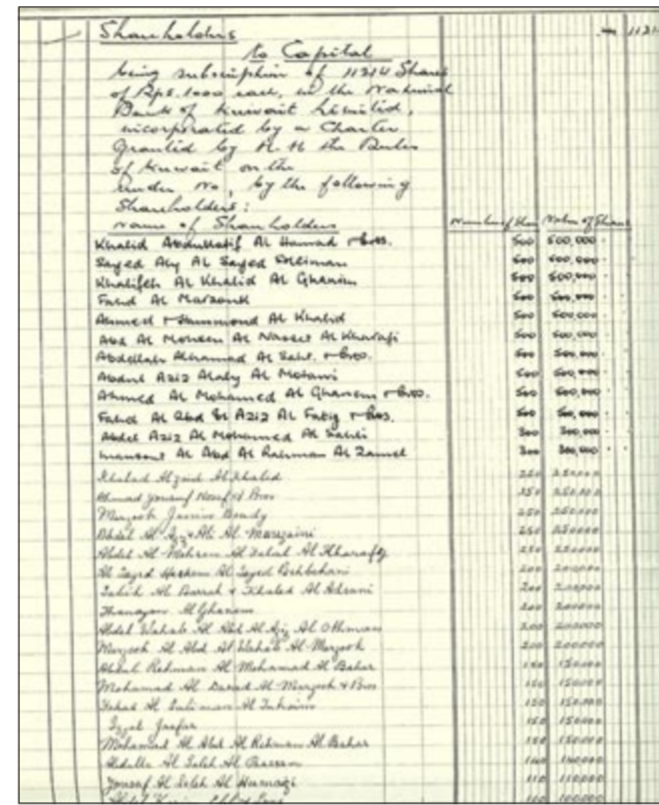 Shareholders 1131
to Capital
being subscription of 11314 Shares
of Rps. 1000 each, in the National
Bank of Kuwait Limited,
incorporated by a Charter
Granted by H. H the Ruler
of Kuwait on the
under No, by the following
Shareholders:
Name of Shareholders Number of Shares Value of Shares
Khalid Abdullatif Al Hamad & Bros. 500 500,000
Sayed Aly Al Sayed Soliman 500 500,000
Khalifeh Al Khalid Al Ghanim 500 500,000
Fahd Al Marzouk 500 500,000
Ahmed & Hammoud Al Khalid 500 500,000
Abd Al Mohsen Al Nasser Al Kharafi 500 500,000
Abdellah Al Sabt. & Bros. 500 500,000
Abdul Aziz Alaly Al Motawi 500 500,000
Ahmed Al Mohamed Al Ghanem & Bros. 500 500,000
Fahd Al Abd El Aziz Al & Bros. 500 500,000
Abdel Aziz Al Mohamed Al 300 300,000
Mansour Al Abd Al Rahman Al Zamel 300 300,000
Khalid Al Khaled 250 250,000
Ahmad Yousuf & Bros 250 250,000
Marzook Boudy 250 250,000
Abdel Al Aziz & Ali Al 250 250000
Abdel Al Mohsen Al Kharafy 250 250000
Al Sayed Hashem Al Sayed Behbehani 200 200000
Saleh Al & Khaled Al 200 200000
Thanayan Al Ghanem 200 200000
Abdel Wahab Al Abd Al Aziz Al Othman 200 200000
Marzook Al Abd Al Wahab Al Marzook 200 200000
Abdul Rahman Al Mohamad Al Bahar 150 150,000
Mohamad Al Al Marzook & Bros 150 150000
Al Suliman Al 150 150,000
Izzat Jaafar 150 150000
Mohamad Al Abd Al Rahman Al Bahar 150 150000
Abdulla Al Saleh Al 140 140000
Yousuf Al Saleh Al Humaizi 110 110,000
100 100000